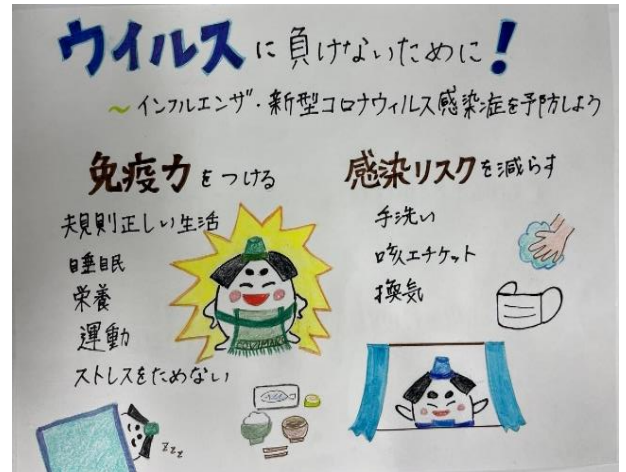 ウイルスに負けないために!
～インフルエンザ・新型コロナウィルス感染症を予防しよう
免疫力をつける
規則正しい生活
睡眠
栄養
運動
ストレスをためない
zzz
感染リスクを減らす
手洗い
咳エチケット
換気